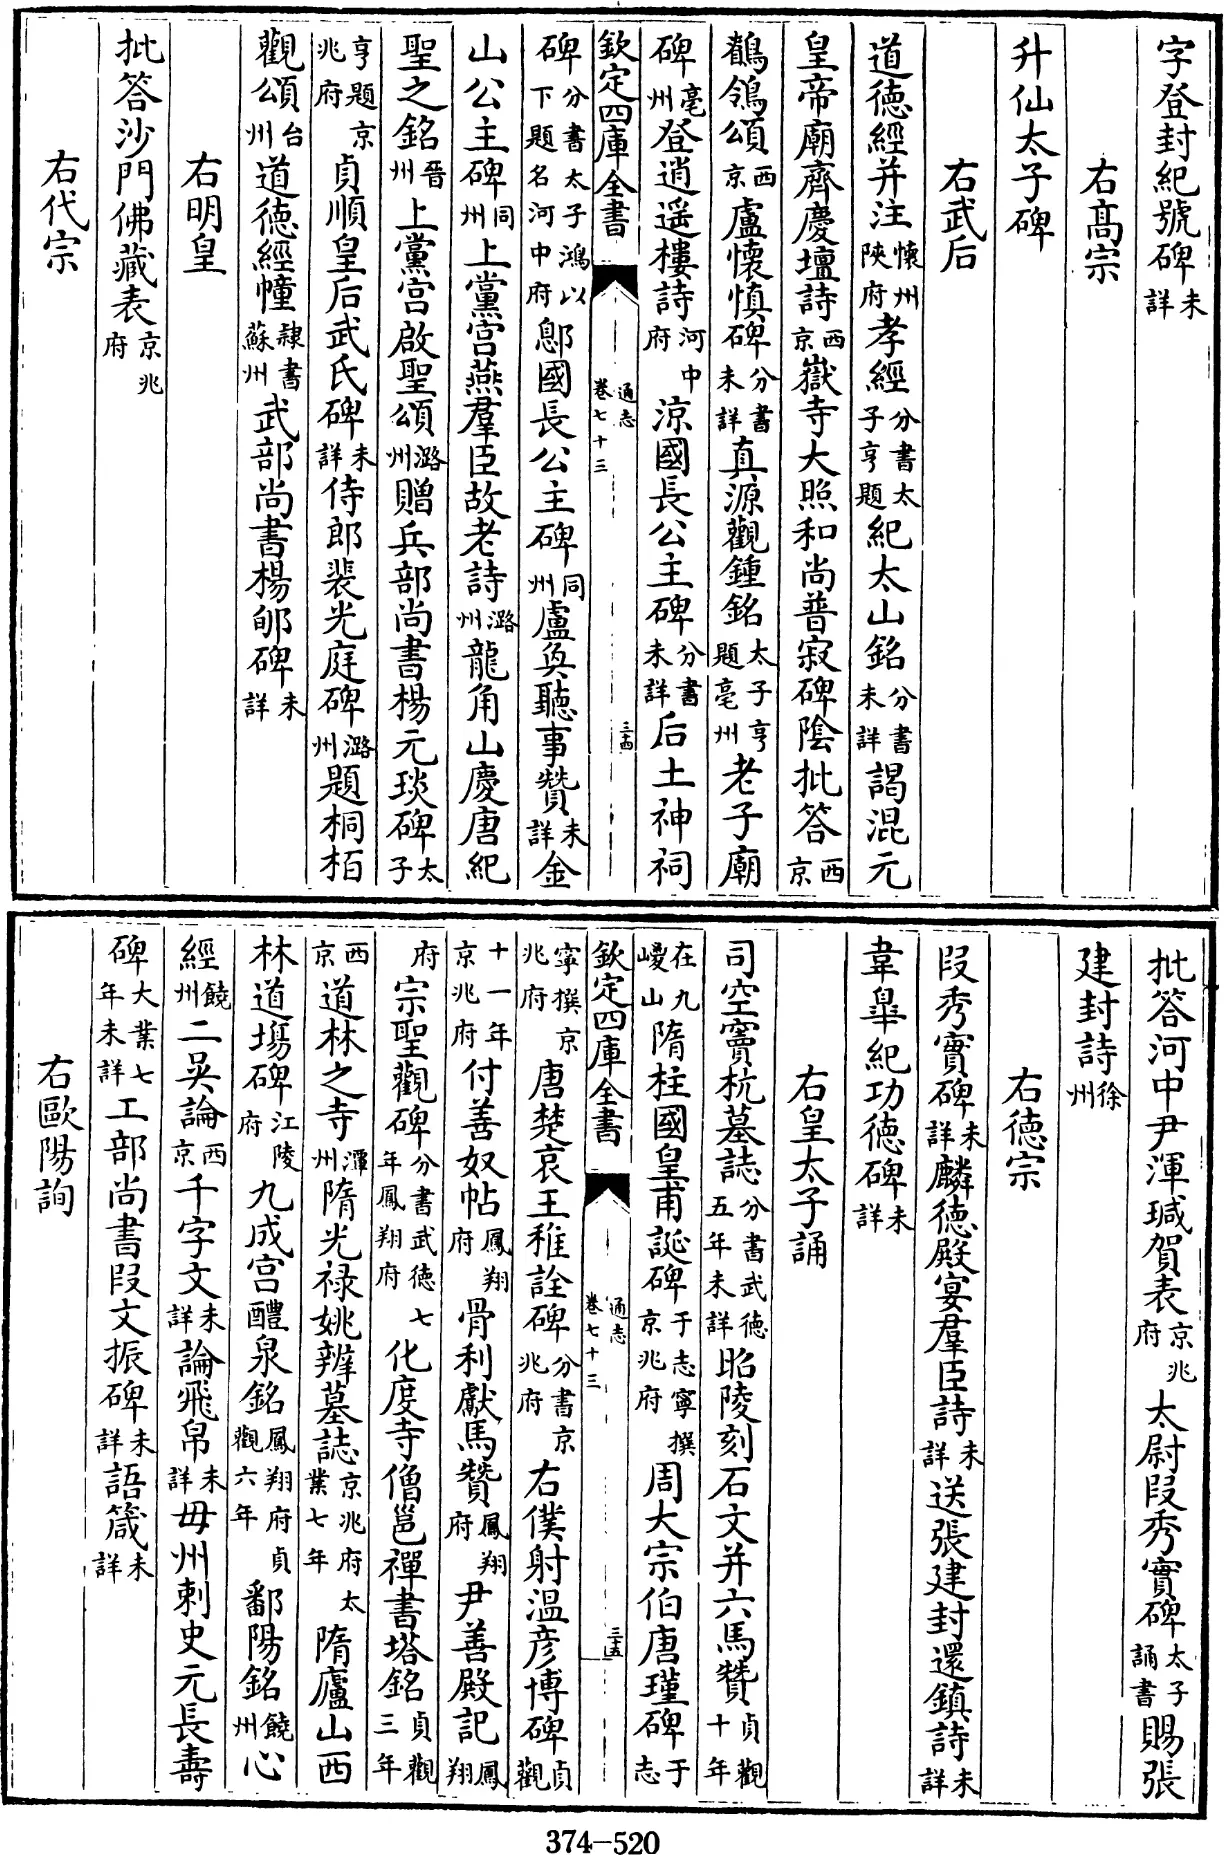 字登封紀號碑未詳
右髙宗
升仙太子碑
右武后
道德經并注懐州陜府孝經分書太子亨題紀太山銘分書未詳謁混元
皇帝廟齊慶壇詩西京嶽寺大照和尚普寂碑陰批答西京
鶺鴒頌西京盧懐慎碑分書未詳真源觀鍾銘太子亨題亳州老子廟
碑亳州登逍遥樓詩河中府涼國長公主碑分書未詳后土神祠
欽定四庫全書 通志卷七十三 三十四
碑分書太子鴻以下題名河中府鄎國長公主碑同州盧奐聽事贊未詳金
山公主碑同州上黨宫燕羣臣故老詩潞州龍角山慶唐紀
聖之銘晉州上黨宫啟聖頌潞州贈兵部尚書楊元琰碑太子
亨題京兆府貞順皇后武氏碑未詳侍郎裴光庭碑潞州題桐栢
觀頌台州道德經幢隷書蘇州武部尚書楊郇碑未詳
右明皇
批答沙門佛藏表京兆府
右代宗
批答河中尹渾瑊賀表京兆府太尉段秀實碑太子誦書賜張
建封詩徐州
右德宗
段秀實碑未詳麟德殿宴羣臣詩未詳送張建封還鎮詩未詳
韋臯紀功德碑未詳
右皇太子誦
司空竇抗墓誌分書武德五年未詳昭陵刻石文并六馬贊貞觀十年
在九嵕山隋柱國皇甫誕碑于志寧撰京兆府周大宗伯唐瑾碑于志
欽定四庫全書 通志卷七十三 三十五
寧撰京兆府唐楚哀王稚詮碑分書京兆府右僕射温彦博碑貞觀
十一年京兆府付善奴帖鳳翔府骨利獻馬贊鳳翔府尹善殿記鳳翔
府宗聖觀碑分書武德七年鳳翔府化度寺僧邕禪書塔銘貞觀三年
西京道林之寺潭州隋光禄姚辨墓誌京兆府太業七年隋廬山西
林道塲碑江陵府九成宫醴泉銘鳳翔府貞觀六年鄱陽銘饒州心
經饒州二吳論西京千字文未詳論飛帛未詳毋州刺史元長壽
碑大業七年未詳工部尚書段文振碑未詳語箴未詳
右歐陽詢
374-520